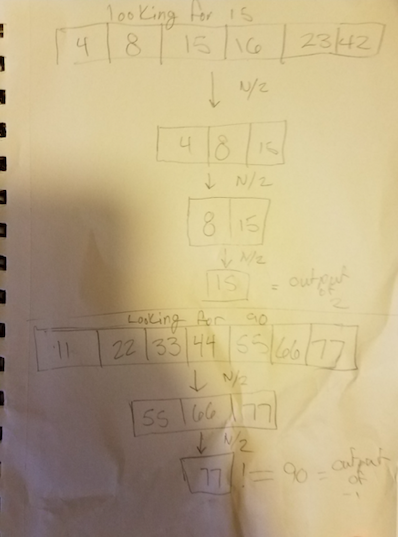 looking for 15
4 8 15 16 23 42
N/2
4 8 15
N/2
8 15
N/2
15 = output of 2
Looking for 90
11 22 33 44 55 66 77
N/2
55 66 77
N/2
77 != 90 = output of -1